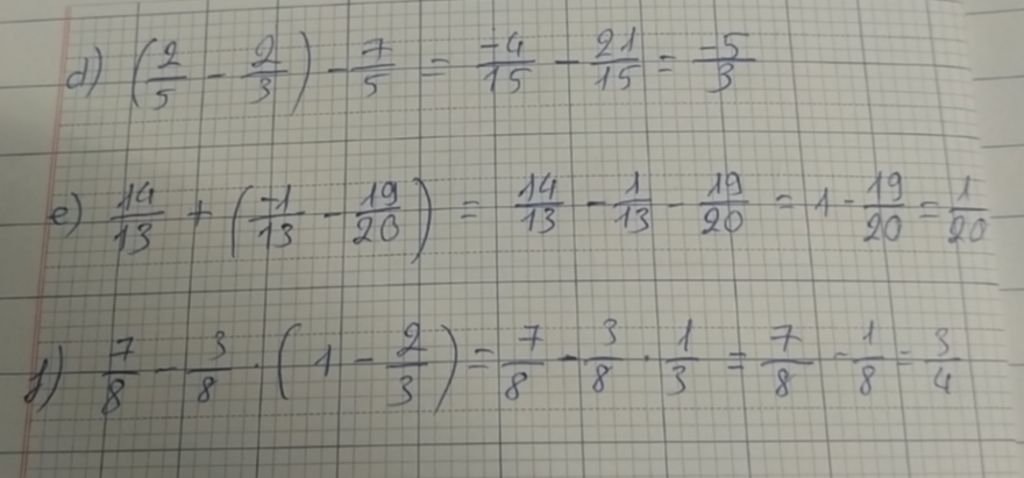 d) (2/5 - 2/3) - 7/5 = -4/15 - 21/15 = -5/3
e) 14/13 + (-1/13 - 19/20) = 14/13 - 1/13 - 19/20 = 1 - 19/20 = 1/20
f) 7/8 - 3/8 . (1 - 2/3) = 7/8 - 3/8 . 1/3 = 7/8 - 1/8 = 3/4